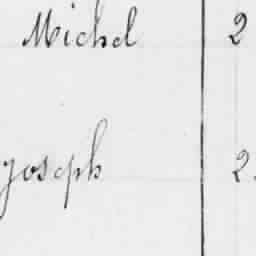 Michel 2
Joseph 2.